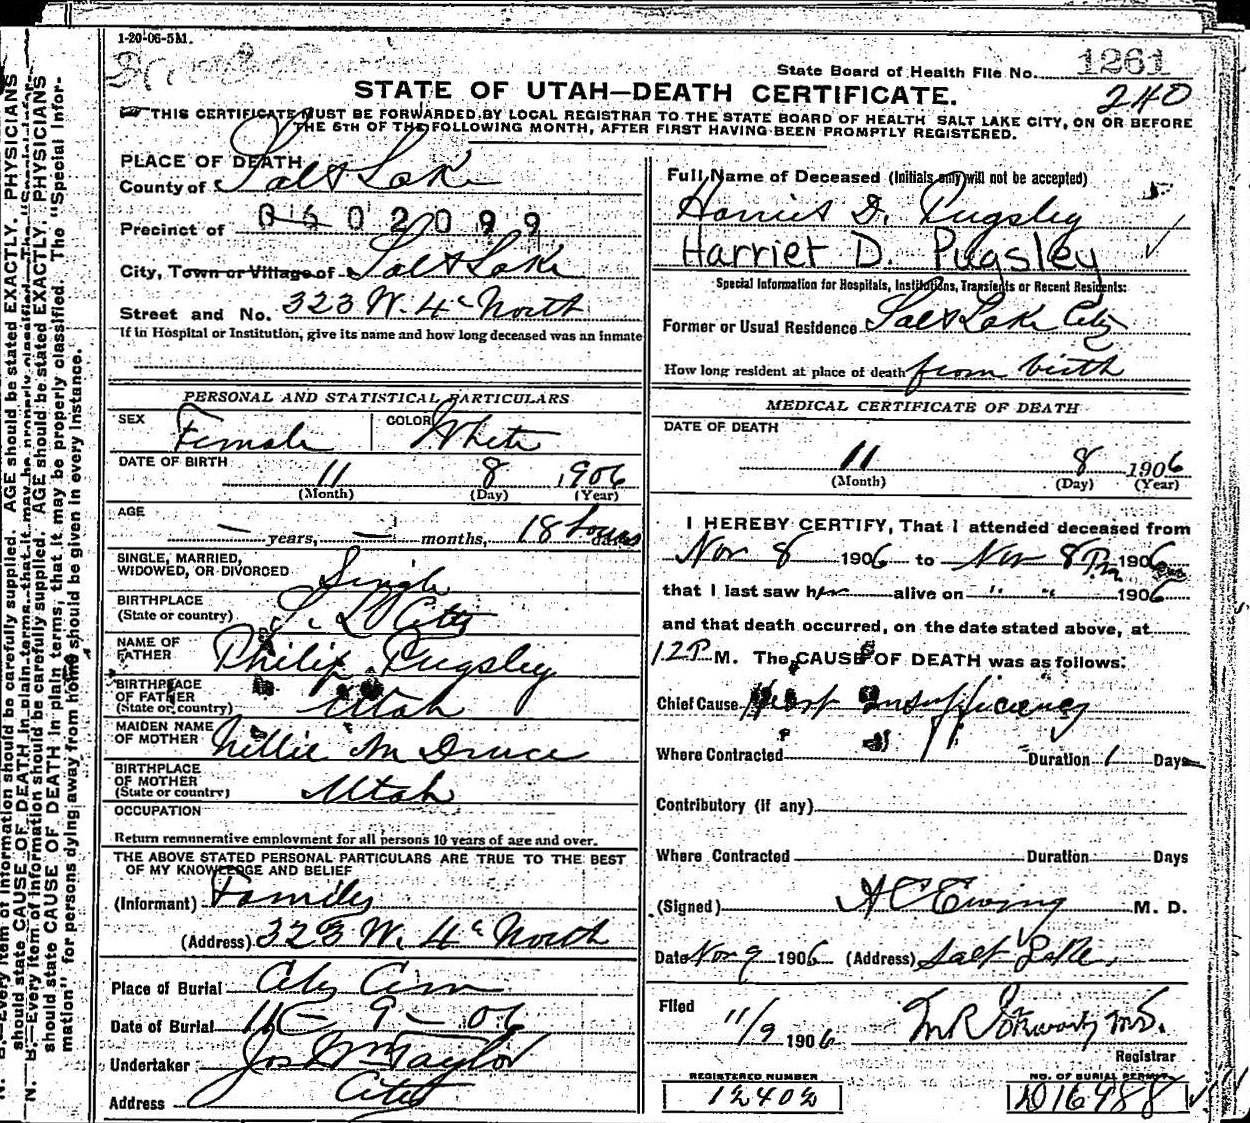 1-20-06-5M.
State Board of Health File No. 1261
STATE OF UTAH—DEATH CERTIFICATE.
240
THIS CERTIFICATE MUST BE FORWARDED BY LOCAL REGISTRAR TO THE STATE BOARD OF HEALTH SALT LAKE CITY, ON OR BEFORE
THE 5TH OF THE FOLLOWING MONTH, AFTER FIRST HAVING BEEN PROMPTLY REGISTERED.
PLACE OF DEATH
County of Salt Lake
Precinct of 0602099
City, Town or Village of Salt Lake
Street and No. 323 W. 4th North
If in Hospital or Institution, give its name and how long deceased was an inmate
PERSONAL AND STATISTICAL PARTICULARS
SEX Female COLOR White
DATE OF BIRTH 11 8 1906
(Month) (Day) (Year)
AGE
— years, — months, 18 hours days
SINGLE, MARRIED,
WIDOWED, OR DIVORCED Single
BIRTHPLACE
(State or country) S. L. City
NAME OF
FATHER Philip Pugsley
BIRTHPLACE
OF FATHER
(State or country) Utah
MAIDEN NAME
OF MOTHER Nellie M Druce
BIRTHPLACE
OF MOTHER
(State or country) Utah
OCCUPATION
Return remunerative employment for all persons 10 years of age and over.
THE ABOVE STATED PERSONAL PARTICULARS ARE TRUE TO THE BEST
OF MY KNOWLEDGE AND BELIEF
(Informant) Family
(Address) 323 W. 4th North
Place of Burial City Cem
Date of Burial 11 – 9 – 06
Undertaker Jos Wm Taylor
Address City
Full Name of Deceased (Initials only will not be accepted)
Harriet D. Pugsley
Harriet D. Pugsley
Special Information for Hospitals, Institutions, Transients or Recent Residents:
Former or Usual Residence Salt Lake City
How long resident at place of death from birth
MEDICAL CERTIFICATE OF DEATH
DATE OF DEATH
11 8 1906
(Month) (Day) (Year)
I HEREBY CERTIFY, That I attended deceased from
Nov 8 1906 to Nov 8 P.m 1906
that I last saw her alive on " " 1906
and that death occurred, on the date stated above, at
12 P. M. The CAUSE OF DEATH was as follows:
Chief Cause Heart Insufficiency
Where Contracted Duration 1 Days
Contributory (if any)
Where Contracted Duration Days
(Signed) A C Ewing M. D.
Date Nov 9 1906 (Address) Salt Lake.
Filed 11/9 1906
Registrar
REGISTERED NUMBER
12402
NO. OF BURIAL PERMIT
N. B.—Every item of information should be carefully supplied. AGE should be stated EXACTLY. PHYSICIANS
should state CAUSE OF DEATH in plain terms, that it may be properly classified. The "Special Infor-
mation" for persons dying away from home should be given in every instance.